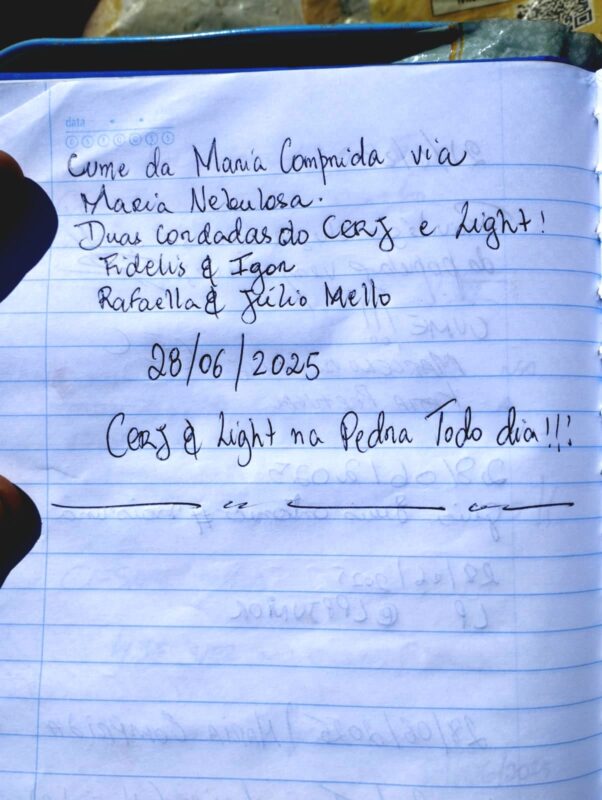 data
D S T Q Q S S
Cume da Maria Comprida via
Maria Nebulosa.
Duas cordadas do CERJ e Light!
Fidelis & Igor
Rafaella & Júlio Mello
28/06/2025
CERJ & Light na Pedra Todo dia!!!